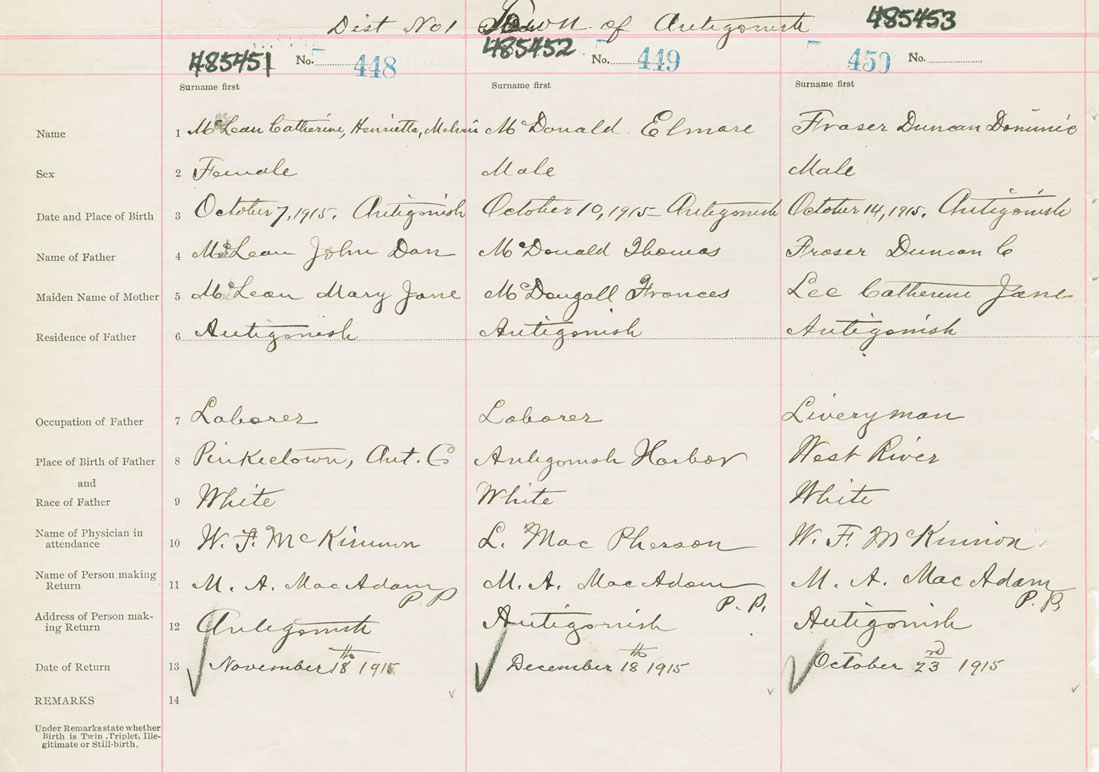 Dist No 1 Town of Antigonish
485451 No. 448 485452 No. 449 450 No. 485453
Surname first Surname first Surname first
Name 1 McLean Catherine, Henrietta, McDonald Elmore Fraser Duncan Dominic
Sex 2 Female Male Male
Date and Place of Birth 3 October 7, 1915. Antigonish October 10, 1915 - Antigonish October 14, 1915. Antigonish
Name of Father 4 McLean John Dan McDonald Thomas Fraser Duncan C
Maiden Name of Mother 5 McLean Mary Jane McDougall Frances Lee Catherine Jane
Residence of Father 6 Antigonish Antigonish Antigonish
Occupation of Father 7 Laborer Laborer Liveryman
Place of Birth of Father 8 Pinkietown, Ant. Co Antigonish Harbor West River
and
Race of Father 9 White White White
Name of Physician in
attendance 10 W. F. McKinnon L. MacPherson W. F. McKinnon
Name of Person making
Return 11 M. A. MacAdam P.P M. A. MacAdam P.P. M. A. MacAdam P.P.
Address of Person mak-
ing Return 12 Antigonish Antigonish Antigonish
Date of Return 13 November 18th 1915 December 18th 1915 October 23rd 1915
REMARKS 14
Under Remarks state whether
Birth is Twin, Triplet, Ille-
gitimate or Still-birth.